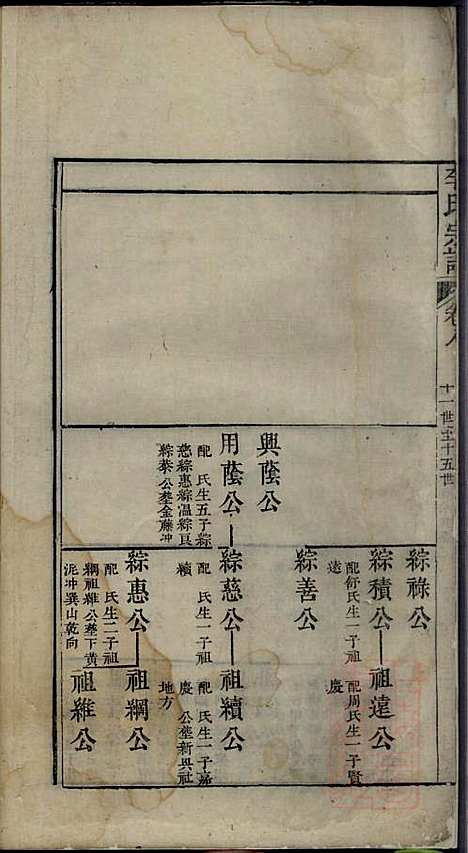 李氏宗譜
卷八
十一世至十五世
興蔭公
用蔭公
配 氏生五子綜
慈綜惠綜溫綜良
綜恭 公塟金藤冲
綜祿公
綜積公
配舒氏生一子祖
遠
祖遠公
配周氏生一子賢
慶
綜善公
綜慈公
配 氏生一子祖
續
祖續公
配 氏生一子嘉
慶 公塟新興社
地方
綜惠公
配 氏生二子祖
綱祖維 公塟下黄
泥冲巽山乾向
祖綱公
祖維公